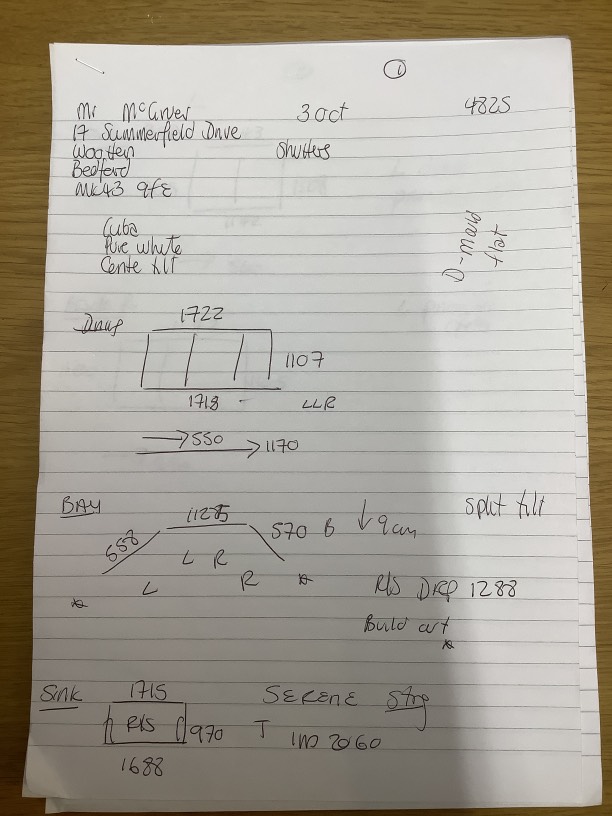 1
Mr McGruer 3 Oct 4825
17 Summerfield Drive
Wootten Shutters
Bedford
MK43 9FE
Cuba
Pure white
Cente tilt
D-mould
flat
1722
1107
1718 - LLR
550
1170
BAY split tilt
558 570 B 9cm
L R
L R
R/S DRP 1288
Build out
Sink 1715 SERENE
R/S 970 T 1m 2060
1688